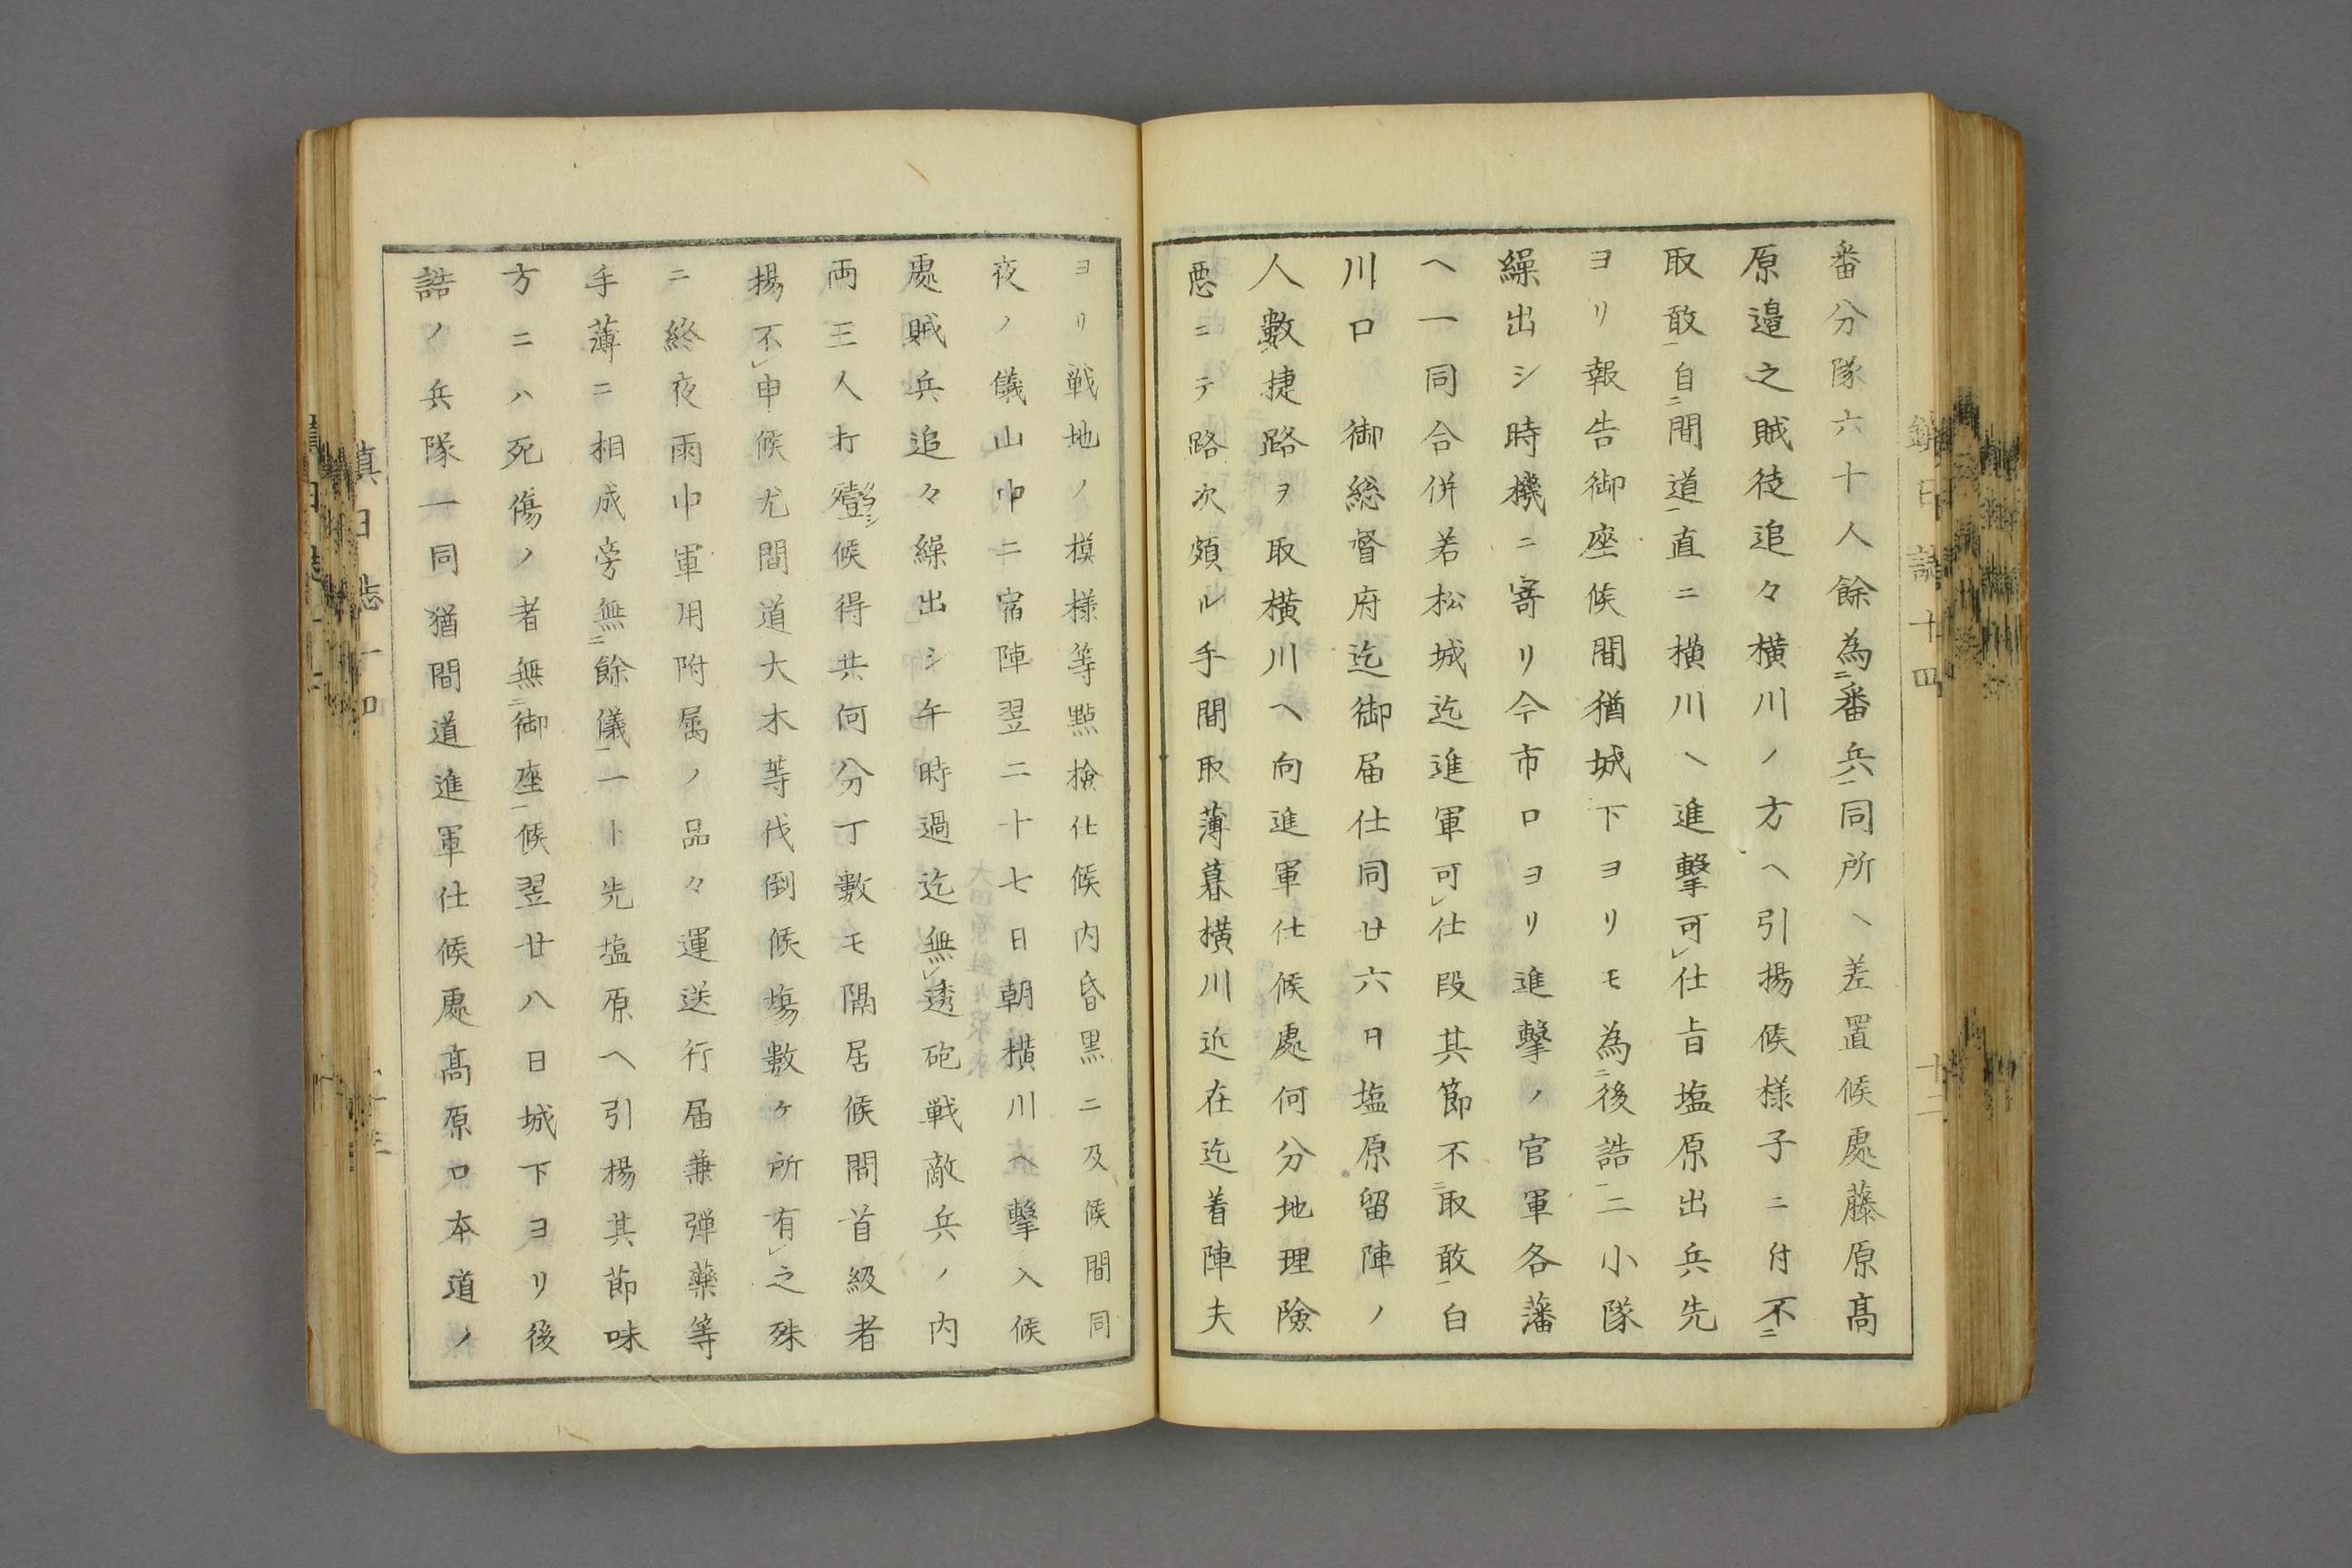 番分隊六十人餘為ニ番兵一同所ヘ差置候處藤原髙
原邉之賊徒追々横川ノ方ヘ引揚候様子ニ付不ニ
取敢一自ニ間道一直ニ横川ヘ進撃可レ仕旨塩原出兵先
ヨリ報告御座候間猶城下ヨリモ為ニ後詰一二小隊
繰出シ時機ニ寄リ今市口ヨリ進撃ノ官軍各藩
ヘ一同合併若松城迄進軍可レ仕段其節不ニ取敢一白
川口　御総督府迄御届仕同廿六日塩原留陣ノ
人數捷路ヲ取横川ヘ向進軍仕候處何分地理険
悪ニテ路次頗ル手間取薄暮横川近在迄着陣夫
ヨリ戦地ノ模様等點撿仕候内昏黒ニ及候間同
夜ノ儀山中ニ宿陣翌二十七日朝横川ヘ撃入候
處賊兵追々繰出シ午時過迄無レ透砲戦敵兵ノ内
両三人打殪シ候得共何分丁數モ隔居候間首級者
揚不レ申候尤間道大木等伐倒候塲數ヶ所有レ之殊
ニ終夜雨中軍用附属ノ品々運送行届兼弾藥等
手薄ニ相成旁無ニ餘儀一一ト先塩原ヘ引揚其節味
方ニハ死傷ノ者無ニ御座一候翌廿八日城下ヨリ後
詰ノ兵隊一同猶間道進軍仕候處髙原口本道ノ
鎮日誌十四
十二